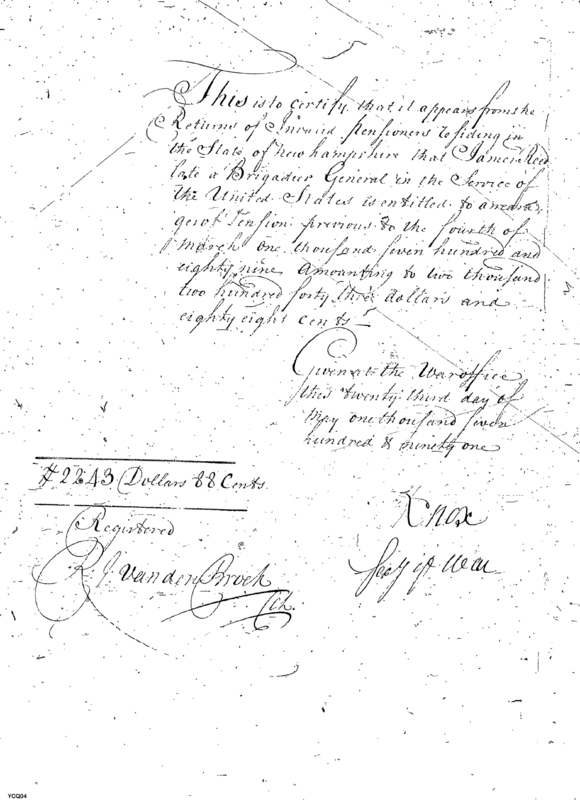 This is to certify that it appears from the
Returns of Invalid pensioners residing in
the State of New hampshire that James Reed
late a Brigadier General in the Service of
the United States is entitled to arrears,
ges of Pension previous to the fourth of
March one thousand seven hundred and
eighty nine amounting to two thousand
two hundred forty three dollars and
eighty eight cents –
Given at the War office
this twenty third day of
May one thousand seven
hundred & ninety one
$ 2243 Dollars 88 Cents.
Registered
HKnox
Secy of War
R. J. Vanden Broek
YCQ04